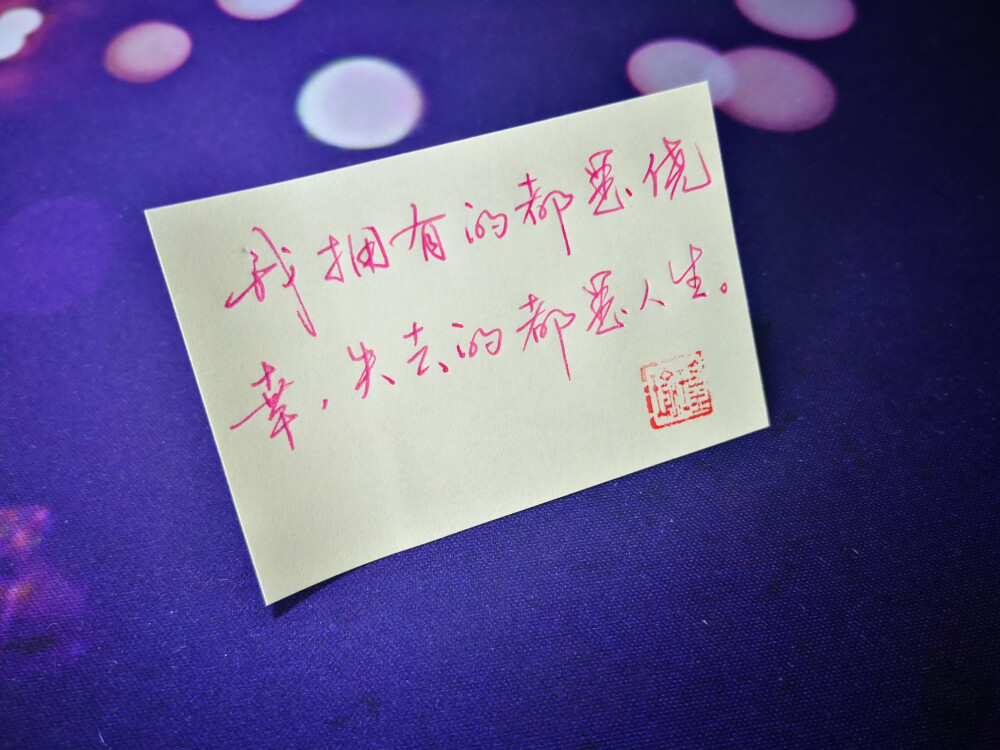 我拥有的都是侥
幸，失去的都是人生。